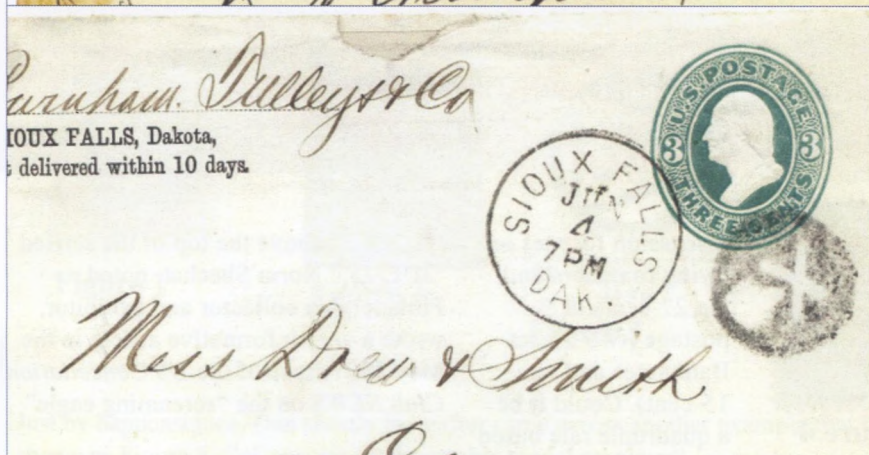 Burnham. Tulleys & Co
SIOUX FALLS, Dakota,
t delivered within 10 days.
U.S. POSTAGE
3 3
THREE CENTS
SIOUX FALLS
JUN
4
7PM
DAK.
Mess Drew & Smith